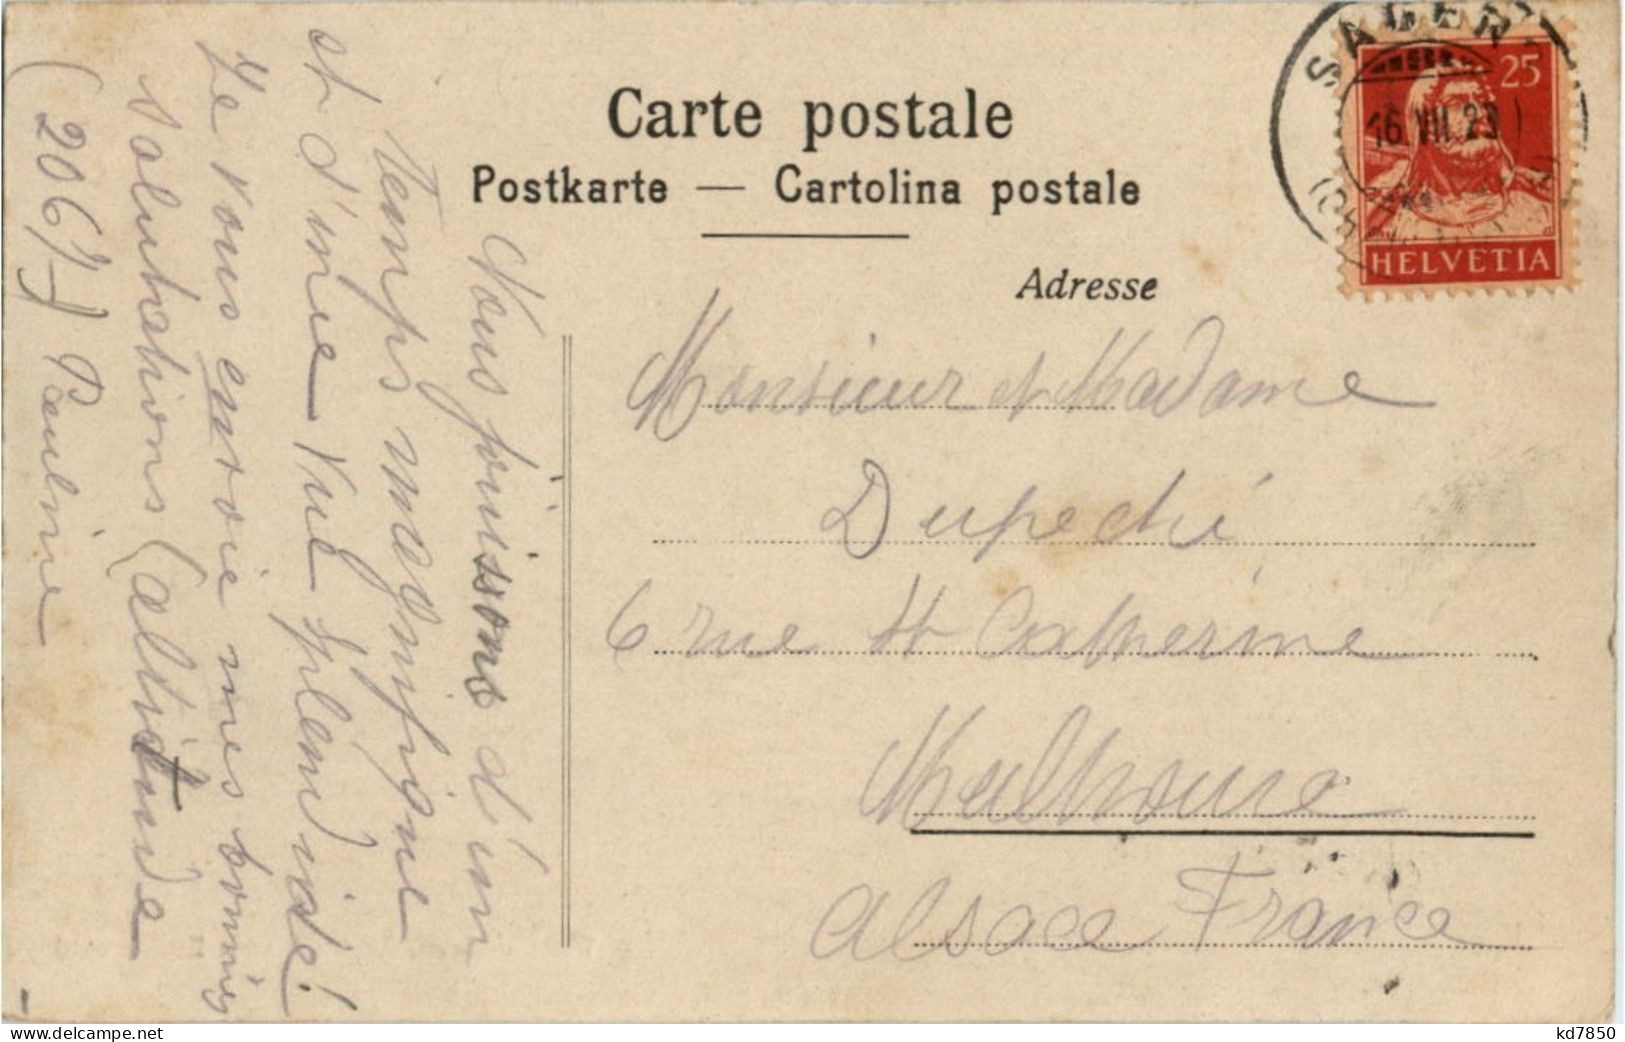 Carte postale
Postkarte — Cartolina postale
Adresse
SAGERS
16.VII.23
25
HELVETIA
Monsieur et Madame
Dupectié
6 rue St Catherine
Mulhouse
Alsace France
Nous jouissons d'un
temps magnifique
et d'une vue splendide!
Je vous envoie mes bonnes
salutations (altitude
(206?) Pauline
www.delcampe.net
kd7850